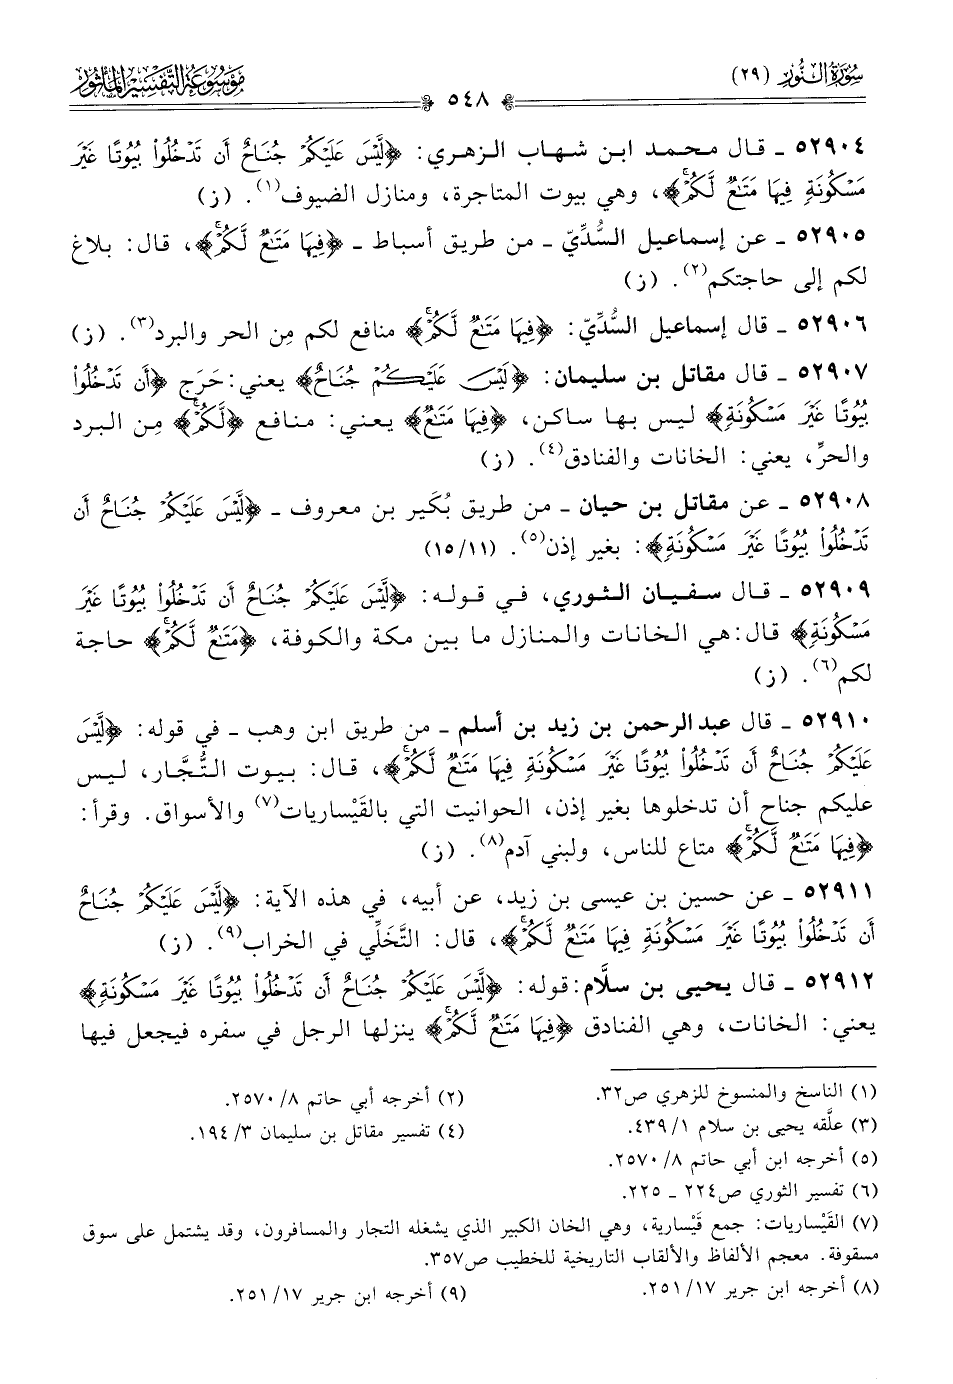 سُورَةُ النُّور (٢٩)
٥٤٨
مَوْسُوعَةُ التَّفْسِيرِ المَأْثُور
٥٢٩٠٤ ـ قال محمد ابن شهاب الزهري: ﴿لَّيْسَ عَلَيْكُمْ جُنَاحٌ أَن تَدْخُلُوا۟ بُيُوتًا غَيْرَ
مَسْكُونَةٍ فِيهَا مَتَـٰعٌ لَّكُمْ﴾، وهي بيوت المتاجرة، ومنازل الضيوف(١). (ز)
٥٢٩٠٥ ـ عن إسماعيل السُّدِّيّ ـ من طريق أسباط ـ ﴿فِيهَا مَتَـٰعٌ لَّكُمْ﴾، قال: بلاغ
لكم إلى حاجتكم(٢). (ز)
٥٢٩٠٦ ـ قال إسماعيل السُّدِّيّ: ﴿فِيهَا مَتَـٰعٌ لَّكُمْ﴾ منافع لكم مِن الحر والبرد(٣). (ز)
٥٢٩٠٧ ـ قال مقاتل بن سليمان: ﴿لَّيْسَ عَلَيْكُمْ جُنَاحٌ﴾ يعني: حَرَج ﴿أَن تَدْخُلُوا۟
بُيُوتًا غَيْرَ مَسْكُونَةٍ﴾ ليس بها ساكن، ﴿فِيهَا مَتَـٰعٌ﴾ يعني: منافع ﴿لَّكُمْ﴾ مِن البرد
والحرِّ، يعني: الخانات والفنادق(٤). (ز)
٥٢٩٠٨ ـ عن مقاتل بن حيان ـ من طريق بُكَير بن معروف ـ ﴿لَّيْسَ عَلَيْكُمْ جُنَاحٌ أَن
تَدْخُلُوا۟ بُيُوتًا غَيْرَ مَسْكُونَةٍ﴾: بغير إذن(٥). (١١/ ١٥)
٥٢٩٠٩ ـ قال سفيان الثوري، في قوله: ﴿لَّيْسَ عَلَيْكُمْ جُنَاحٌ أَن تَدْخُلُوا۟ بُيُوتًا غَيْرَ
مَسْكُونَةٍ﴾ قال: هي الخانات والمنازل ما بين مكة والكوفة، ﴿مَتَـٰعٌ لَّكُمْ﴾ حاجة
لكم(٦). (ز)
٥٢٩١٠ ـ قال عبدالرحمن بن زيد بن أسلم ـ من طريق ابن وهب ـ في قوله: ﴿لَّيْسَ
عَلَيْكُمْ جُنَاحٌ أَن تَدْخُلُوا۟ بُيُوتًا غَيْرَ مَسْكُونَةٍ فِيهَا مَتَـٰعٌ لَّكُمْ﴾، قال: بيوت التُّجَّار، ليس
عليكم جناح أن تدخلوها بغير إذن، الحوانيت التي بالقَيْساريات(٧) والأسواق. وقرأ:
﴿فِيهَا مَتَـٰعٌ لَّكُمْ﴾ متاع للناس، ولبني آدم(٨). (ز)
٥٢٩١١ ـ عن حسين بن عيسى بن زيد، عن أبيه، في هذه الآية: ﴿لَّيْسَ عَلَيْكُمْ جُنَاحٌ
أَن تَدْخُلُوا۟ بُيُوتًا غَيْرَ مَسْكُونَةٍ فِيهَا مَتَـٰعٌ لَّكُمْ﴾، قال: التَّخَلِّي في الخراب(٩). (ز)
٥٢٩١٢ ـ قال يحيى بن سلَّام: قوله: ﴿لَّيْسَ عَلَيْكُمْ جُنَاحٌ أَن تَدْخُلُوا۟ بُيُوتًا غَيْرَ مَسْكُونَةٍ﴾
يعني: الخانات، وهي الفنادق ﴿فِيهَا مَتَـٰعٌ لَّكُمْ﴾ ينزلها الرجل في سفره فيجعل فيها
(١) الناسخ والمنسوخ للزهري ص٣٢.
(٢) أخرجه أبي حاتم ٨/ ٢٥٧٠.
(٣) علَّقه يحيى بن سلام ١/ ٤٣٩.
(٤) تفسير مقاتل بن سليمان ٣/ ١٩٤.
(٥) أخرجه ابن أبي حاتم ٨/ ٢٥٧٠.
(٦) تفسير الثوري ص٢٢٤ ـ ٢٢٥.
(٧) القَيْساريات: جمع قَيْسارية، وهي الخان الكبير الذي يشغله التجار والمسافرون، وقد يشتمل على سوق
مسقوفة. معجم الألفاظ والألقاب التاريخية للخطيب ص٣٥٧.
(٨) أخرجه ابن جرير ١٧/ ٢٥١.
(٩) أخرجه ابن جرير ١٧/ ٢٥١.